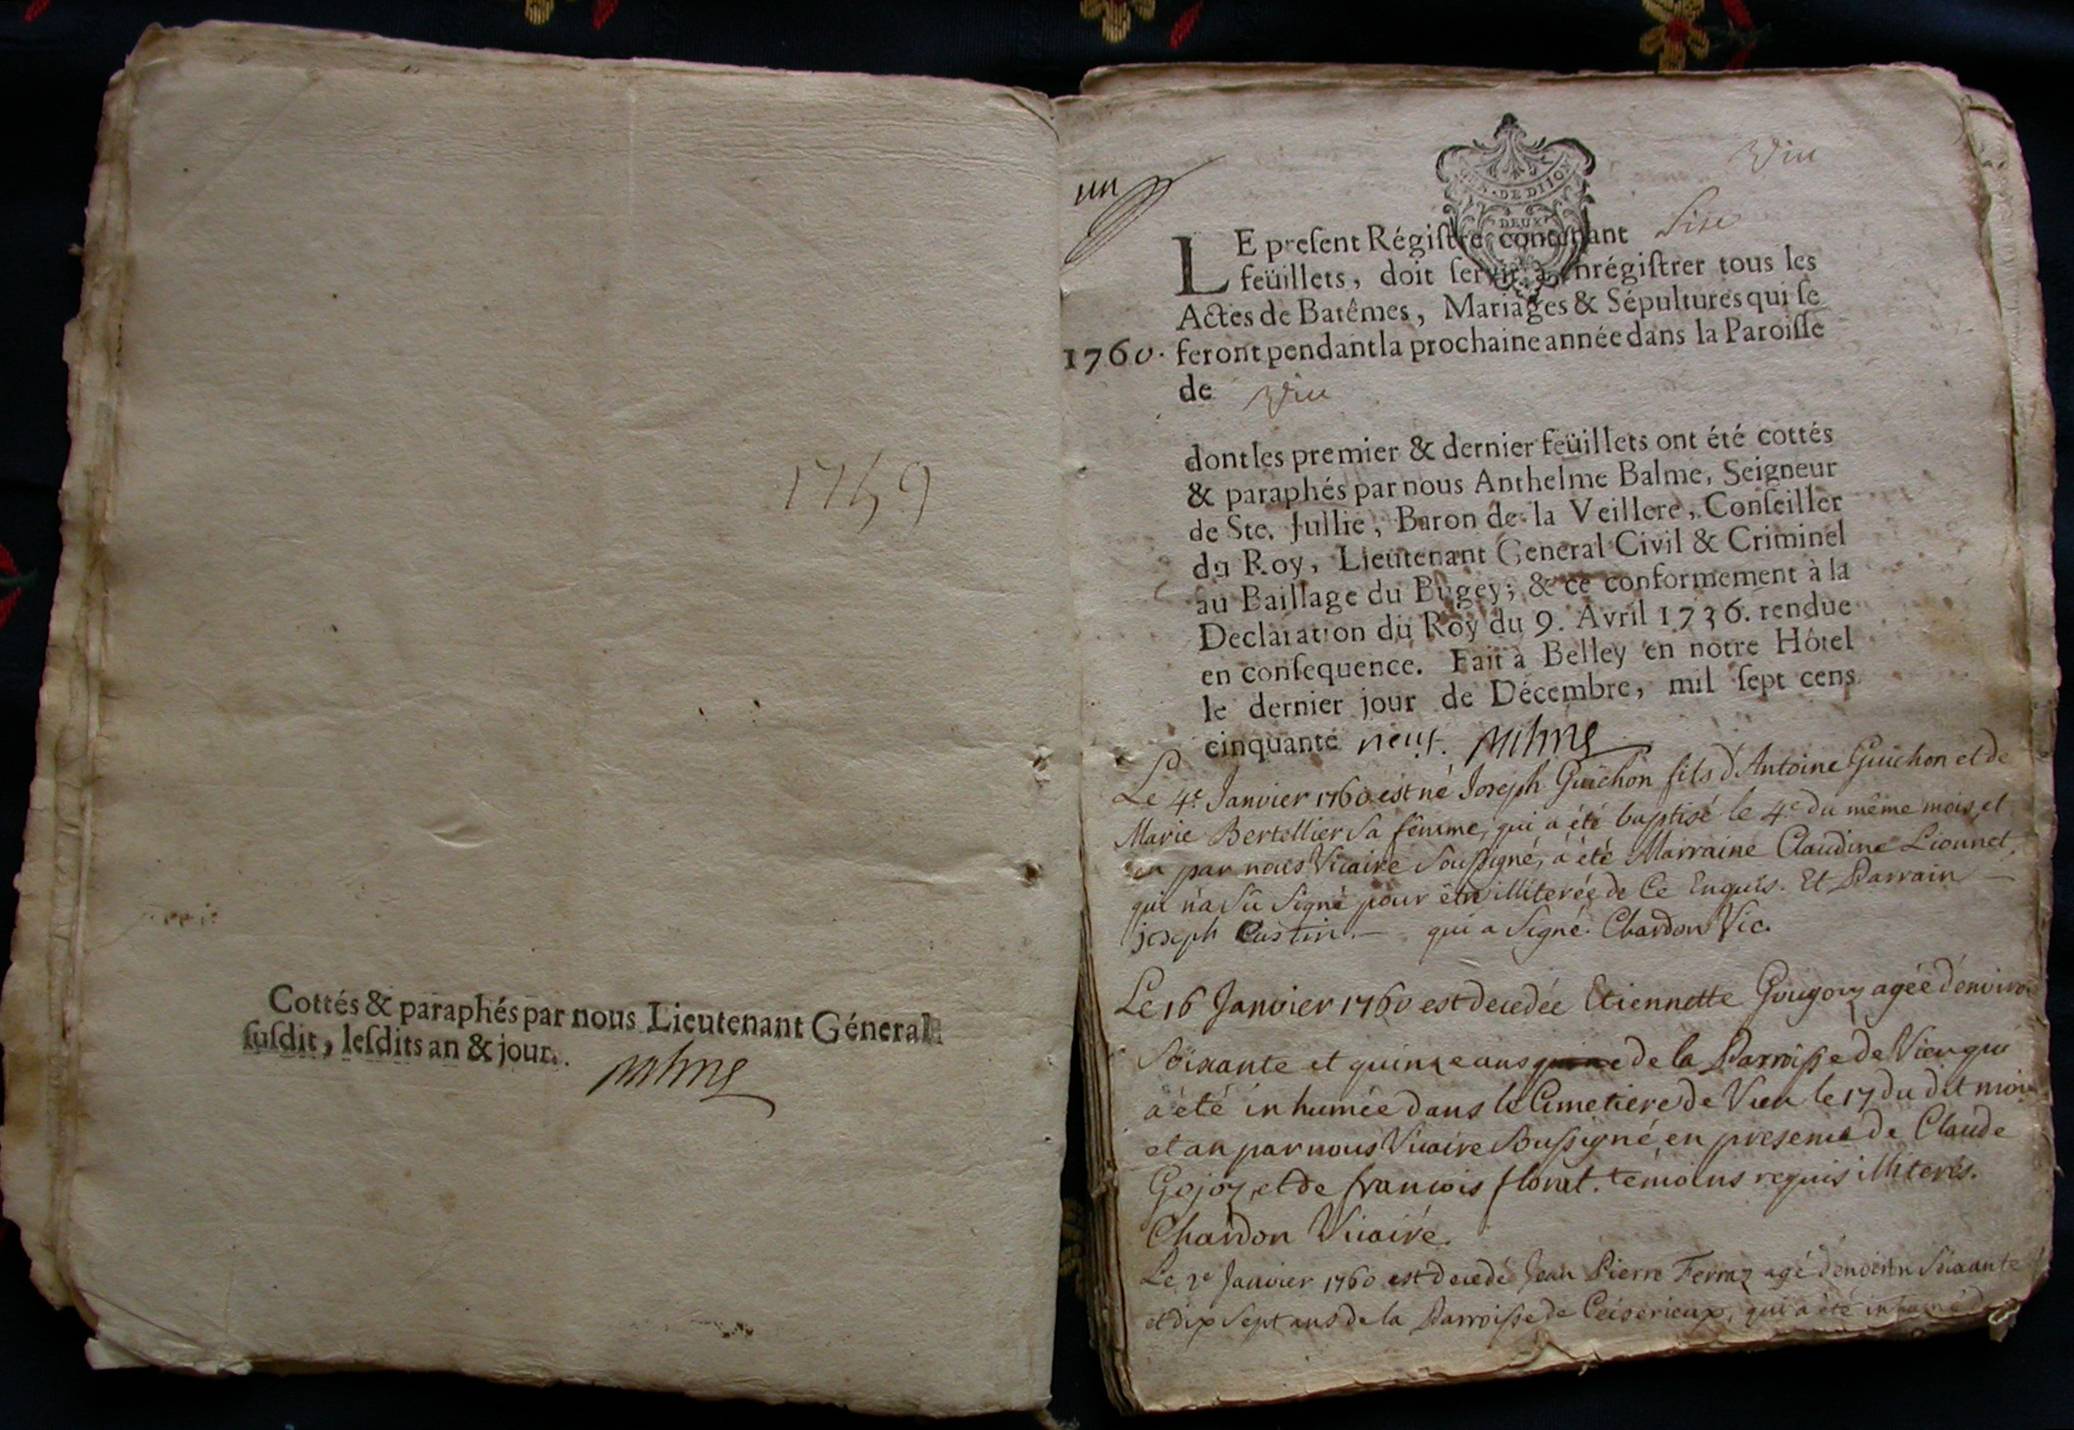 1759
Cottés & paraphés par nous Lieutenant Géneral
ſuſdit, leſdits an & jour.
un
GEN · DE DIJON
DEUX
Viu
LE preſent Régiſtre contenant Sise
feüillets, doit ſervir à enrégiſtrer tous les
Actes de Batêmes, Mariages & Sépultures qui ſe
1760. feront pendant la prochaine année dans la Paroiſſe
de Viu
dont les premier & dernier feüillets ont été cottés
& paraphés par nous Anthelme Balme, Seigneur
de Ste. Jullie, Baron de la Veillere, Conſeiller
du Roy, Lieutenant General Civil & Criminel
au Baillage du Bugey; & ce conformement à la
Declaration du Roy du 9. Avril 1736. rendue
en conſequence. Fait à Belley en notre Hôtel
le dernier jour de Décembre, mil ſept cens
cinquante neuf.
Le 4e Janvier 1760 est né Joseph Guichon fils d'Antoine Guichon et de
Marie Bertellier Sa fémme, qui a été baptisé le 4e du même mois, et
an par nous Vicaire Soussigné, a été Marraine Claudine Lionnet,
qui n'a Sû Signé pour être illiterée de Ce Enquis. Et Parrain
joseph Custin. — qui a Signé. Chardon Vic.
Le 16 Janvier 1760 est decedée Etiennette Gougoz agée d'environ
Soixante et quinze ans de la Parroisse de Vieu qui
a été inhumée dans le Cimetiere de Vieu le 17 du dit mois
et an par nous Vicaire Soussigné en presence de Claude
Gojoz, et de francois florat. temoins requis illiterés.
Chardon Vicaire.
Le 2e Janvier 1760 est decedé Jean Pierre Ferraz agé d'environ Soixante
et dix sept ans de la Parroisse de Ceiserieux, qui a été inhumé